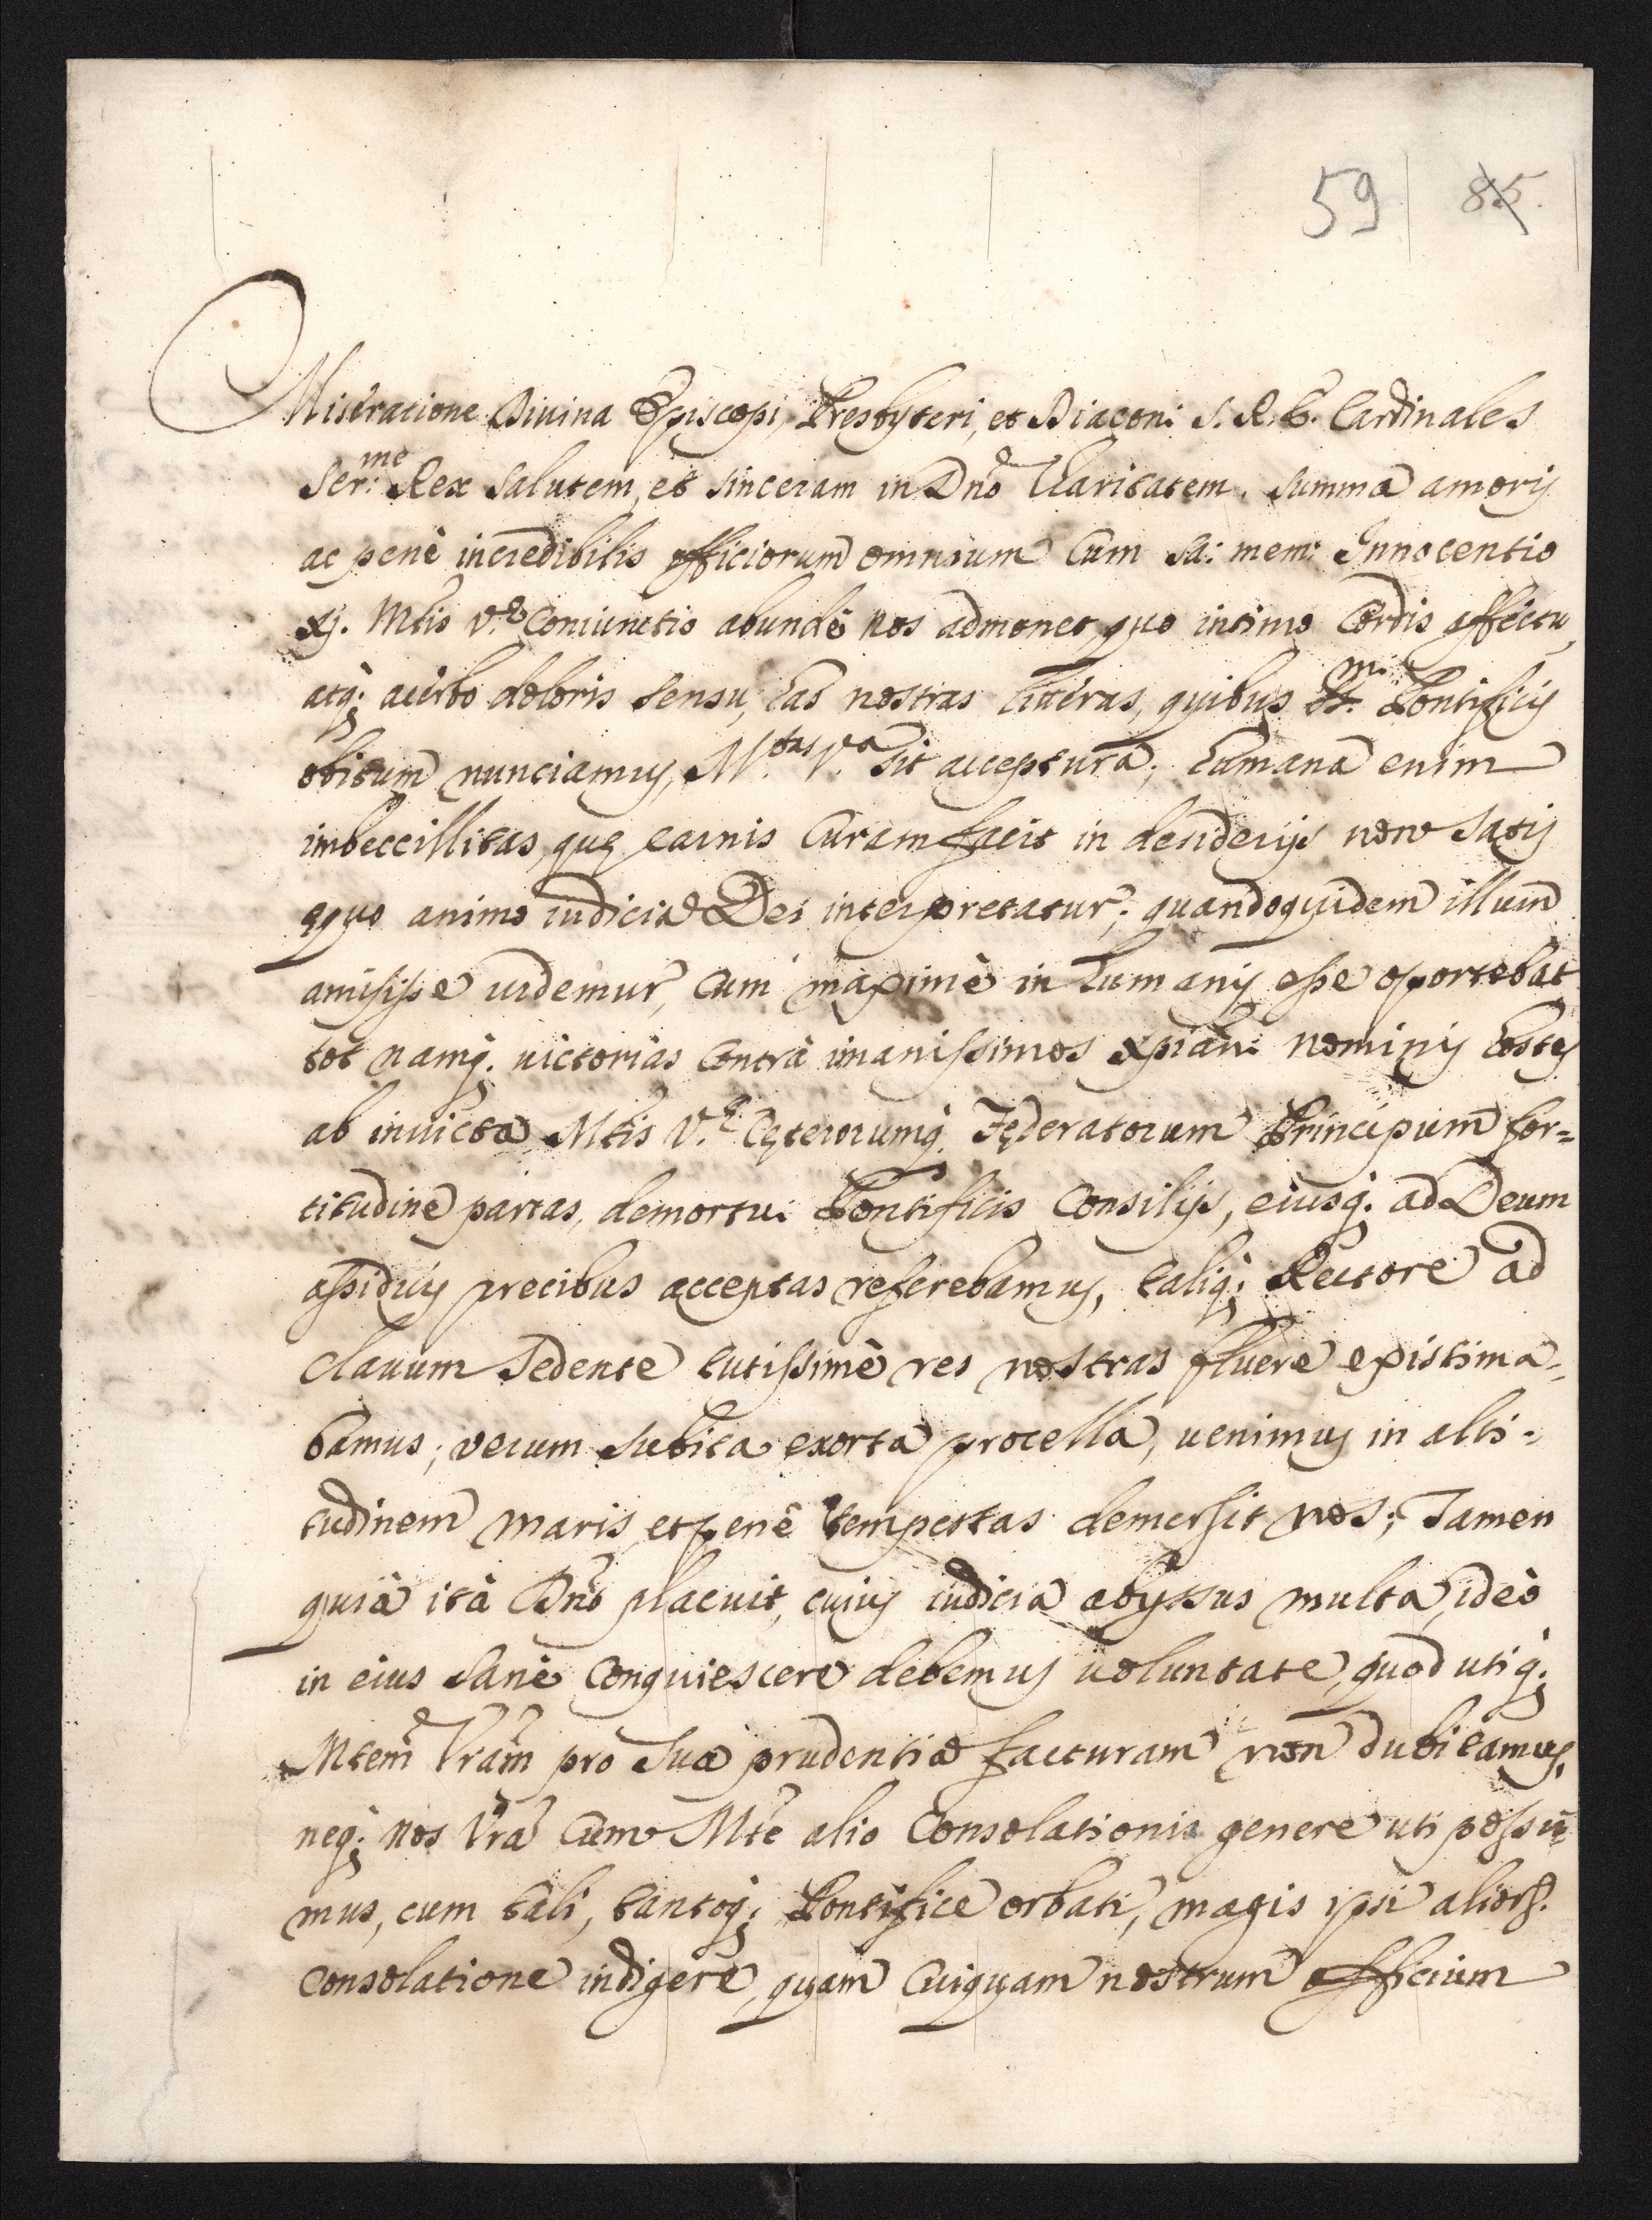 59 85.
Miseratione Diuina Episcopi, Presbyteri, et Diaconi S. R. E. Cardinales
Ser:me Rex salutem, et sinceram in Dno Charitatem. Summa amoris
ac penè incredibilis officiorum omnium Cum sa: mem: Innocentio
XI. Mtis V.ę Coniunctio abundè nos admonet, quo intimo Cordis affectu,
atq; acerbo doloris sensu, has nostras litteras, quibus Pontificis
obitum nunciamus, M.tas V.a sit acceptura; humana enim
imbeccillitas, quę carnis Curam facit in desiderijs non satis
ęquo animo iudicia Dei interpretatur; quandoquidem illum
amisisse uidemur, cum maximè in humanis esse oportebat
tot namq. uictorias Contrà imanissimos Xpiani nominis hostes
ab inuicta Mtis V.ę Cęterorumq. Fęderatorum Principum for=
titudine partas, demortui Pontificis Consilijs, eiusq. ad Deum
assiduis precibus acceptas referebamus, taliq; Rectore ad
Clauum Sedente tutissimè res nostras fluere existima=
bamus; verum subita exorta procella, uenimus in alti=
tudinem maris, et penè tempestas demersit nos; Tamen
quià ità Dno placuit, cuius iudicia abyssus multa, ideò
in eius sanè Conquiescere debemus uoluntate, quod utiq;
Mtem Vram pro sua prudentia facturam non dubitamus,
neq; nos Vra Cum Mte alio Consolationis genere uti possu=
mus, cum tali, tantoq; Pontifice orbati, magis ipsi alior.
Consolatione indigere, quam Cuiquam nostrum officium